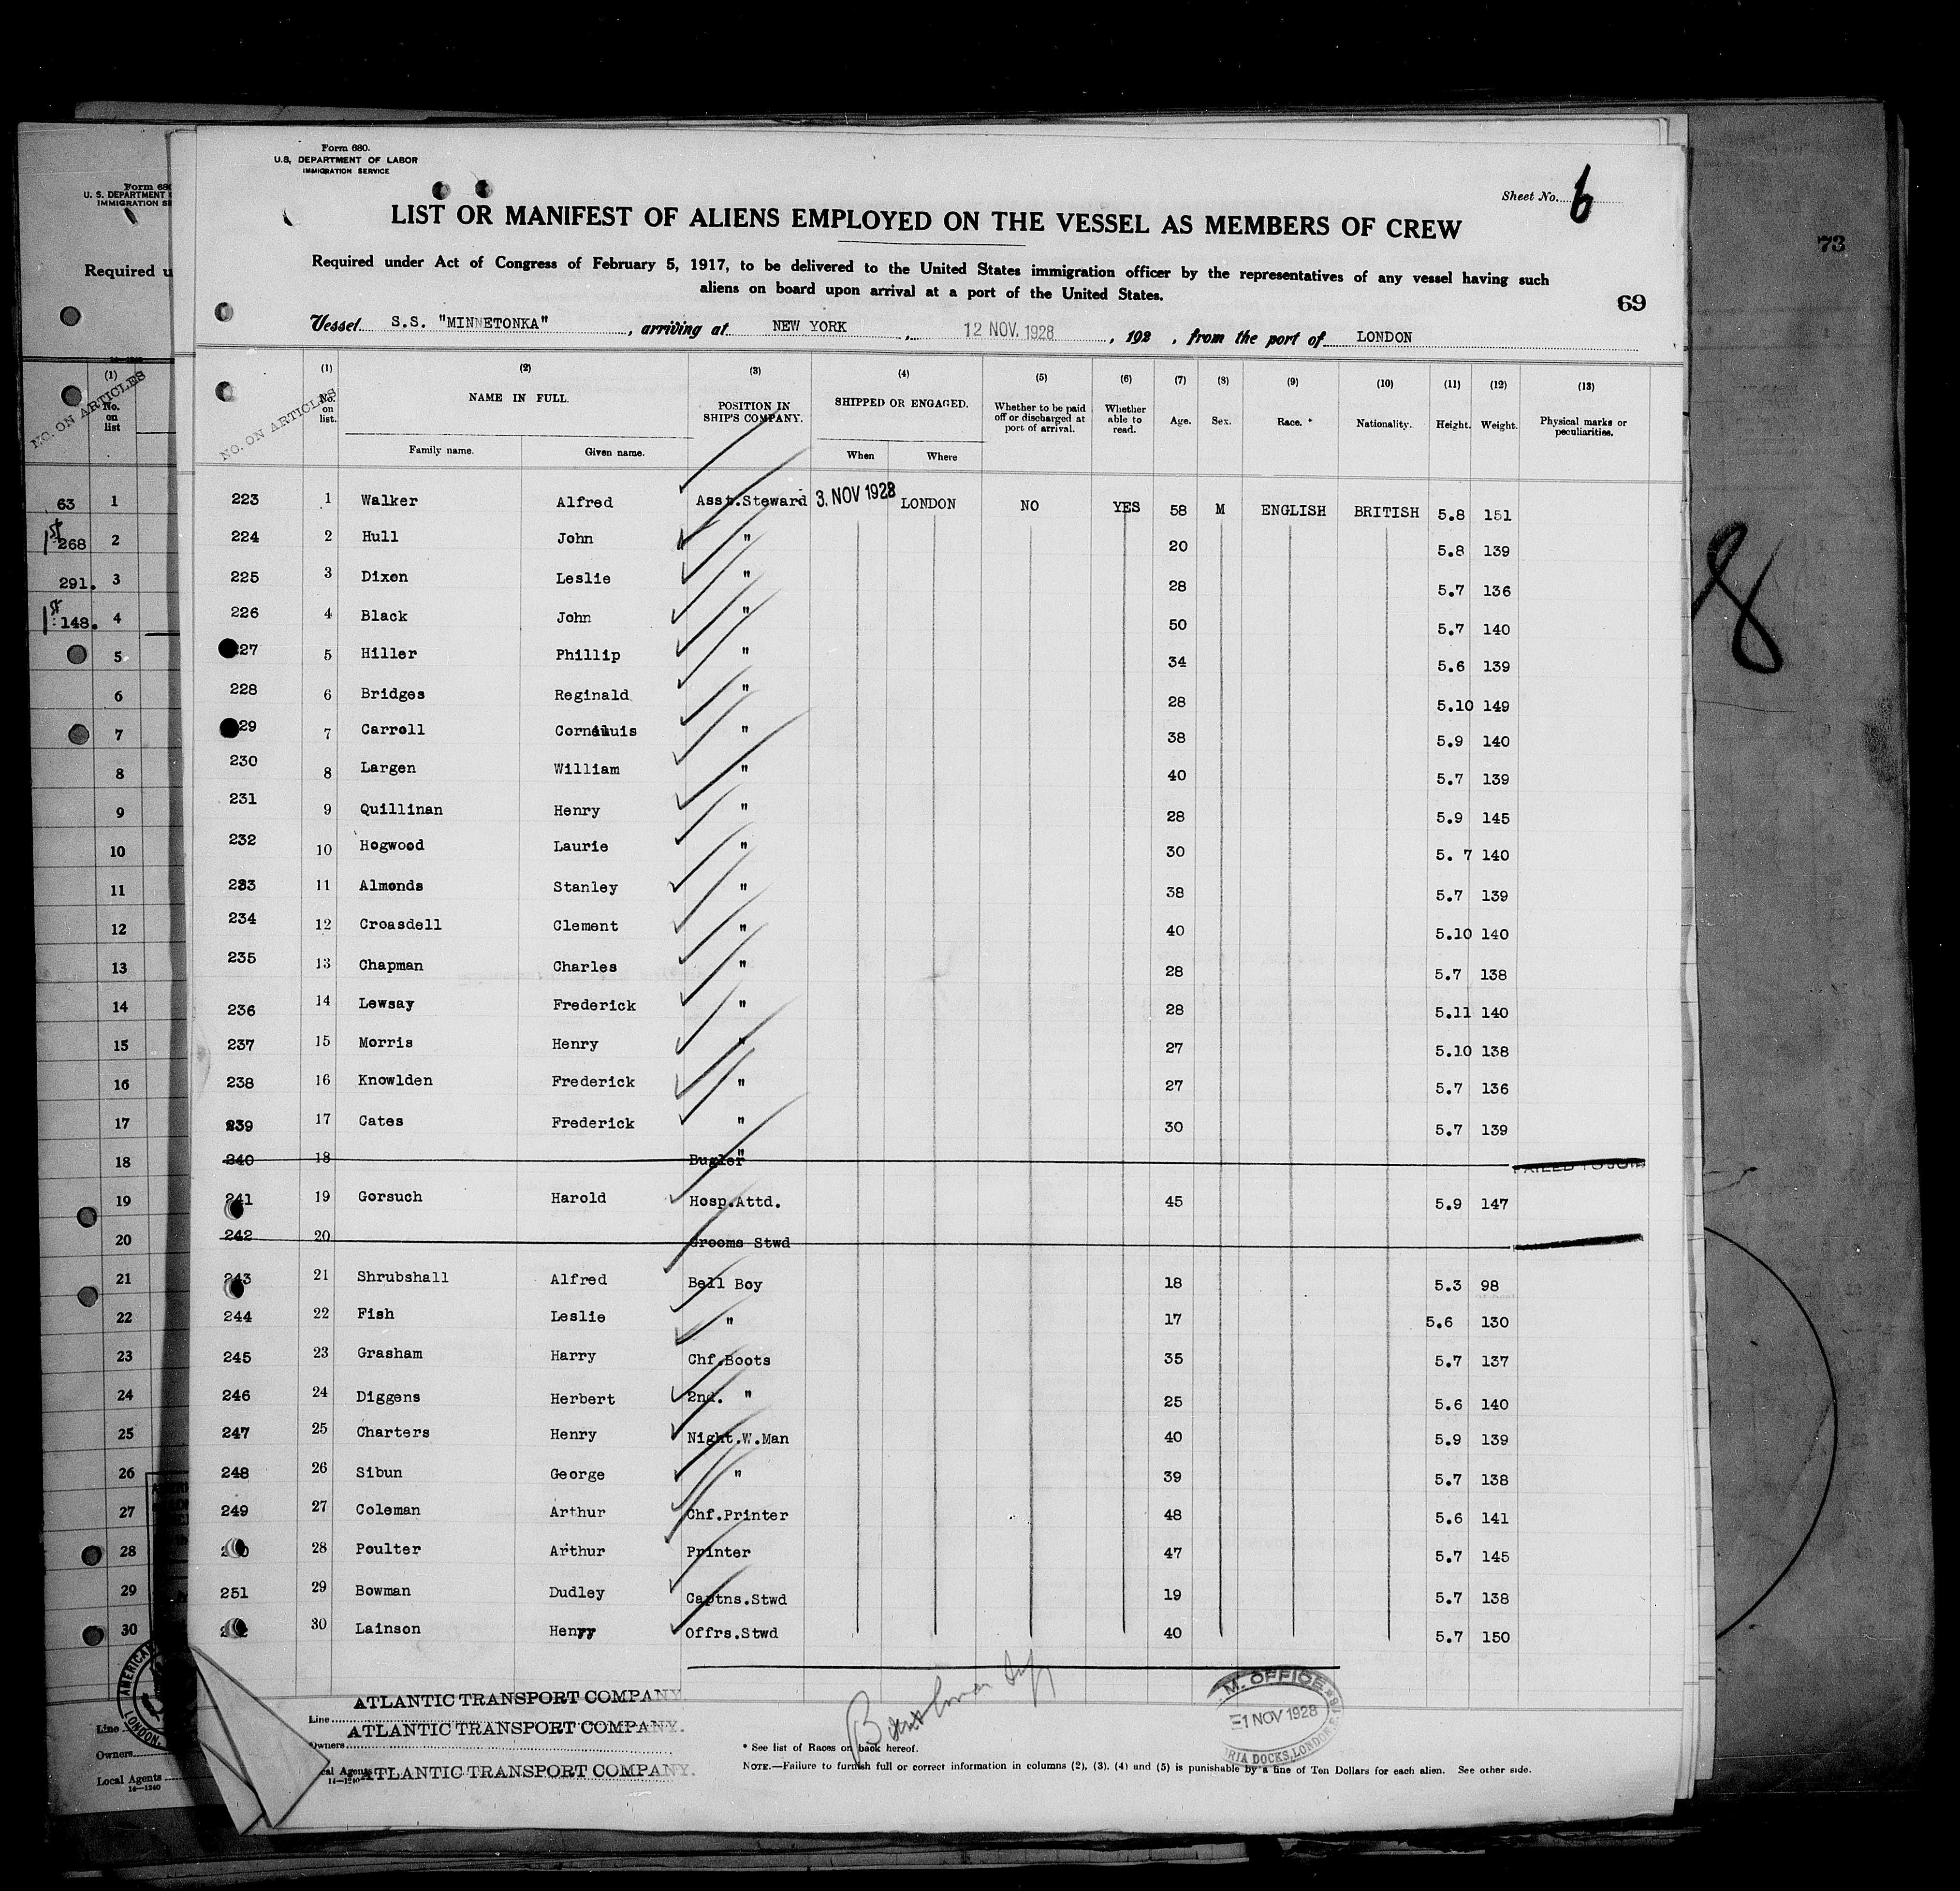 Form 680.
U.S. DEPARTMENT OF LABOR
IMMIGRATION SERVICE
Sheet No. 6
LIST OR MANIFEST OF ALIENS EMPLOYED ON THE VESSEL AS MEMBERS OF CREW
Required under Act of Congress of February 5, 1917, to be delivered to the United States immigration officer by the representatives of any vessel having such
aliens on board upon arrival at a port of the United States.
69
Vessel S.S. "MINNETONKA", arriving at NEW YORK, 12 NOV. 1928, 192 , from the port of LONDON
NO. ON ARTICLES (1) No. on list. (2) NAME IN FULL. Family name. Given name. (3) POSITION IN SHIP'S COMPANY. (4) SHIPPED OR ENGAGED. When Where (5) Whether to be paid off or discharged at port of arrival. (6) Whether able to read. (7) Age. (8) Sex. (9) Race. * (10) Nationality. (11) Height. (12) Weight. (13) Physical marks or peculiarities.
223 1 Walker Alfred Asst.Steward 3. NOV 1928 LONDON NO YES 58 M ENGLISH BRITISH 5.8 151
224 2 Hull John " 20 5.8 139
225 3 Dixon Leslie " 28 5.7 136
226 4 Black John " 50 5.7 140
27 5 Hiller Phillip " 34 5.6 139
228 6 Bridges Reginald " 28 5.10 149
29 7 Carroll " 38 5.9 140
230 8 Largen William " 40 5.7 139
231 9 Quillinan Henry " 28 5.9 145
232 10 Hogwood Laurie " 30 5. 7 140
233 11 Almonds Stanley " 38 5.7 139
234 12 Croasdell Clement " 40 5.10 140
235 13 Chapman Charles " 28 5.7 138
236 14 Lewsay Frederick " 28 5.11 140
237 15 Morris Henry " 27 5.10 138
238 16 Knowlden Frederick " 27 5.7 136
239 17 Cates Frederick " 30 5.7 139
240 18 Bugler " FAILED TO JOIN
241 19 Gorsuch Harold Hosp.Attd. 45 5.9 147
242 20 Grooms Stwd
243 21 Shrubshall Alfred Bell Boy 18 5.3 98
244 22 Fish Leslie " 17 5.6 130
245 23 Grasham Harry Chf.Boots 35 5.7 137
246 24 Diggens Herbert 2nd. " 25 5.6 140
247 25 Charters Henry Night.W.Man 40 5.9 139
248 26 Sibun George " 39 5.7 138
249 27 Coleman Arthur Chf.Printer 48 5.6 141
28 Poulter Arthur Printer 47 5.7 145
251 29 Bowman Dudley Captns.Stwd 19 5.7 138
30 Lainson Henry Offrs.Stwd 40 5.7 150
Line ATLANTIC TRANSPORT COMPANY.
Owners ATLANTIC TRANSPORT COMPANY.
Agents ATLANTIC TRANSPORT COMPANY.
14-1240
M. OFFICE
1 NOV 1928
RIA DOCKS, LONDON
* See list of Races on back hereof.
NOTE.—Failure to furnish full or correct information in columns (2), (3), (4) and (5) is punishable by a fine of Ten Dollars for each alien. See other side.
Form 68
U. S. DEPARTMENT
IMMIGRATION SE
Required u
NO. ON ARTICLES (1) No. on list
63 1
1st 268 2
291. 3
1st 148. 4
5
6
7
8
9
10
11
12
13
14
15
16
17
18
19
20
21
22
23
24
25
26
27
28
29
30
AMERICA
LONDON.
Line
Owners
Local Agents
14—1240
73
8